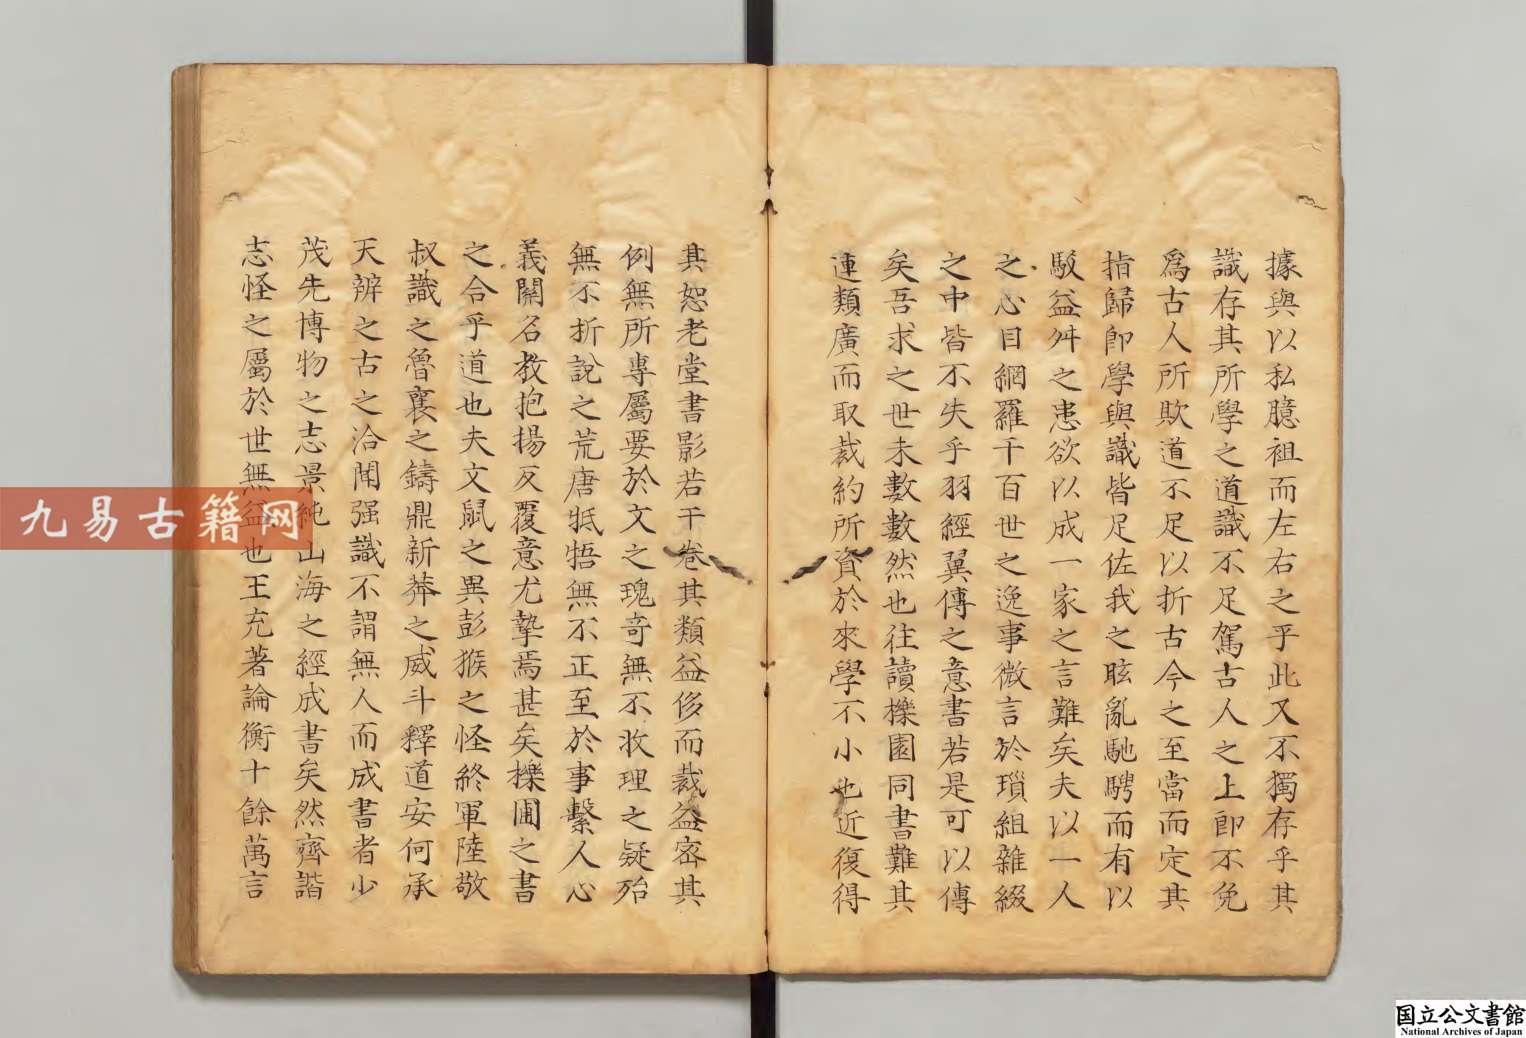 據與以私臆袓而左右之乎此又不獨存乎其
識存其所學之道識不足駕古人之上即不免
爲古人所欺道不足以折古今之至當而定其
指歸即學與識皆足佐我之眩亂馳騁而有以
駁益舛之患欲以成一家之言難矣夫以一人
之心目網羅千百世之逸事微言於瑣組雜綴
之中皆不失乎羽經翼傳之意書若是可以傳
矣吾求之世未數數然也往讀櫟園同書難其
連類廣而取裁約所資於來學不小也近復得
其恕老堂書影若干卷其類益侈而裁益密其
例無所專屬要於文之瑰奇無不收理之疑殆
無不折說之荒唐牴牾無不正至於事繫人心
義關名教抱揚反覆意尤摯焉甚矣櫟圃之書
之合乎道也夫文鼠之異彭猴之怪終軍陸敬
叔識之魯襄之鑄鼎新莽之威斗釋道安何承
天辨之古之洽聞强識不謂無人而成書者少
茂先博物之志景純山海之經成書矣然齊諧
志怪之屬於世無益也王充著論衡十餘萬言
九易古籍网
国立公文書館
National Archives of Japan